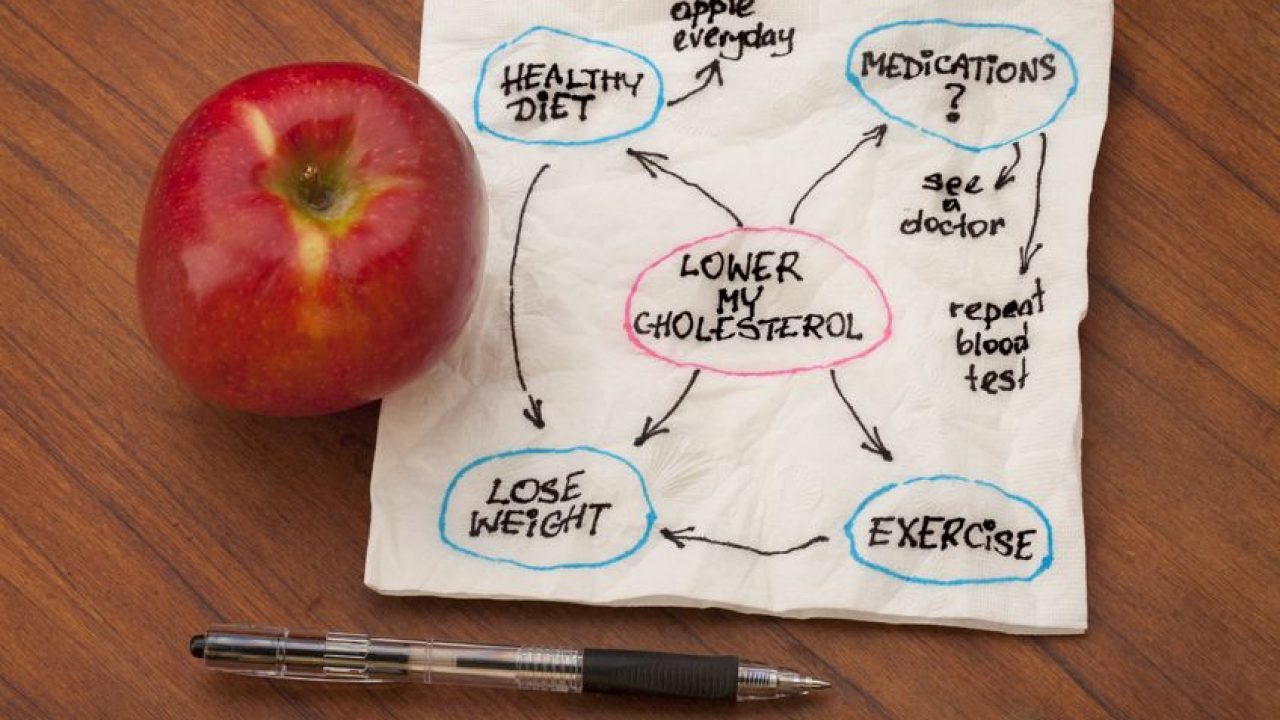 apple
everyday
HEALTHY
DiET
MEDiCATiONS
?
see
a
doctor
LOWER
MY
CHOLESTEROL
repeat
blood
test
LOSE
WEiGHT
EXERCiSE